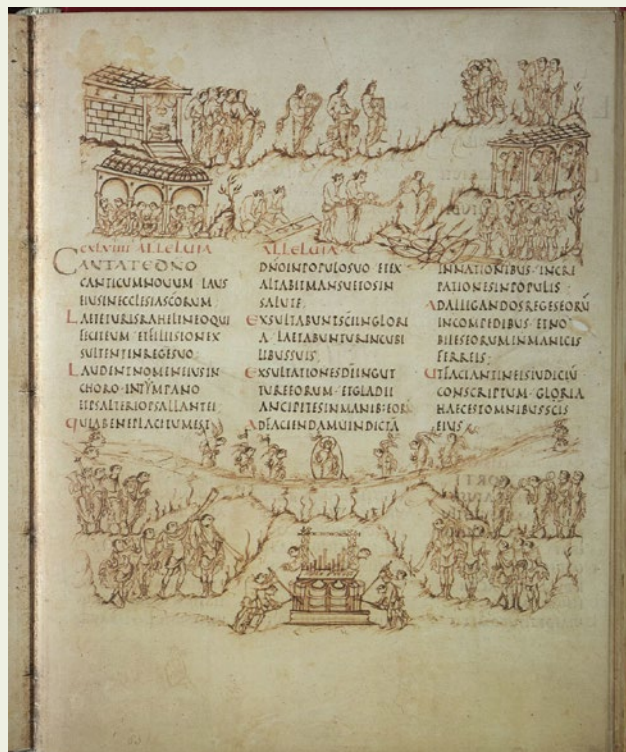 CXLVIIII ALLELUIA
CANTATE DNO
CANTICUM NOUUM LAUS
EIUS IN ECCLESIA SCORUM
LAETETUR ISRAHEL IN EO QUI
FECIT EUM ET FILII SION EX
SULTENT IN REGE SUO
LAUDENT NOMEN EIUS IN
CHORO INTYMPANO
ET PSALTERIO PSALLANT EI
QUIA BENE PLACITUM EST
ALLELUIA
DNO IN POPULO SUO ET EX
ALTABIT MANSUETOS IN
SALUTE
EXSULTABUNT SCI IN GLORI
A LAETABUNTUR IN CUBI
LIBUS SUIS
EXSULTATIONES DI IN GUT
TURE EORUM ET GLADII
ANCIPITES IN MANIB EOR
AD FACIENDAM UINDICTA
IN NATIONIBUS INCRE
PATIONES IN POPULIS
AD ALLIGANDOS REGES EORU
IN COMPEDIBUS ET NO
BILES EORUM IN MANICIS
FERREIS
UT FACIANT IN EIS IUDICIU
CONSCRIPTUM GLORIA
HAEC EST OMNIBUS SCIS
EIUS